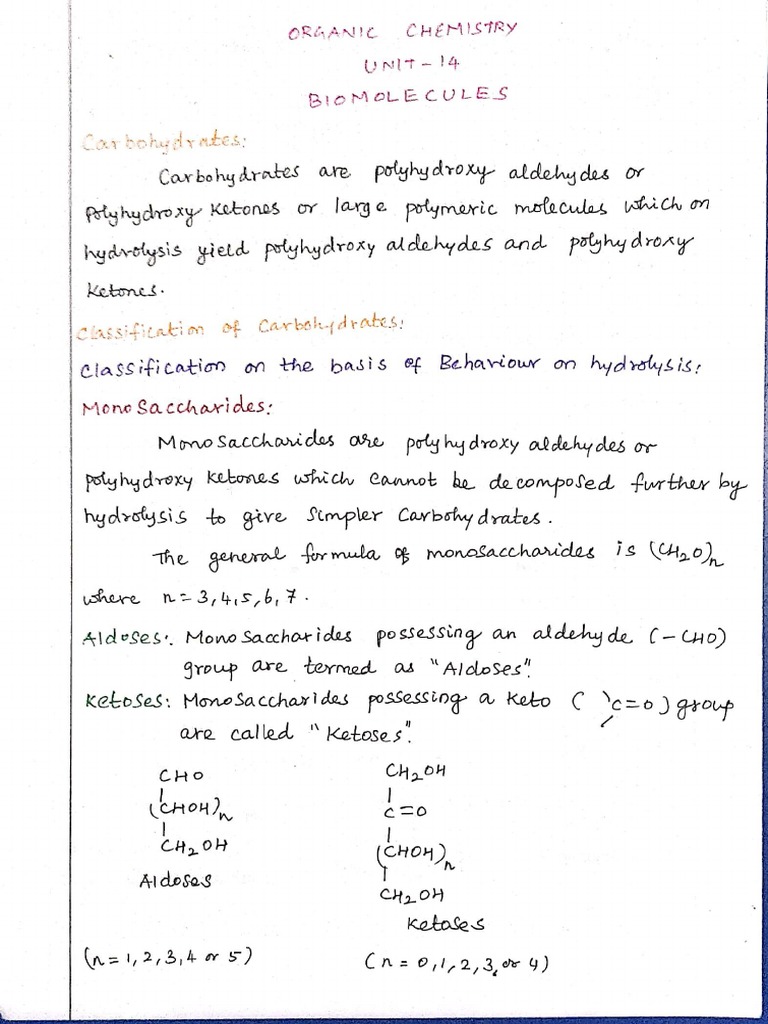 ORGANIC CHEMISTRY
UNIT-14
BIOMOLECULES
Carbohydrates:
Carbohydrates are polyhydroxy aldehydes or
Polyhydroxy Ketones or large polymeric molecules which on
hydrolysis yield polyhydroxy aldehydes and polyhydroxy
Ketones.
Classification of Carbohydrates:
Classification on the basis of Behaviour on hydrolysis:
MonoSaccharides:
MonoSaccharides are polyhydroxy aldehydes or
polyhydroxy Ketones which cannot be decomposed further by
hydrolysis to give Simpler Carbohydrates.
The general formula of monosaccharides is (CH₂O)ₙ
where n=3,4,5,6,7.
Aldoses: MonoSaccharides possessing an aldehyde (-CHO)
group are termed as "Aldoses".
Ketoses: MonoSaccharides possessing a Keto ( >C=O) group
are called "Ketoses".
CHO
|
(CHOH)ₙ
|
CH₂OH
Aldoses
(n=1,2,3,4 or 5)
CH₂OH
|
C=O
|
(CHOH)ₙ
|
CH₂OH
Ketoses
(n=0,1,2,3, or 4)